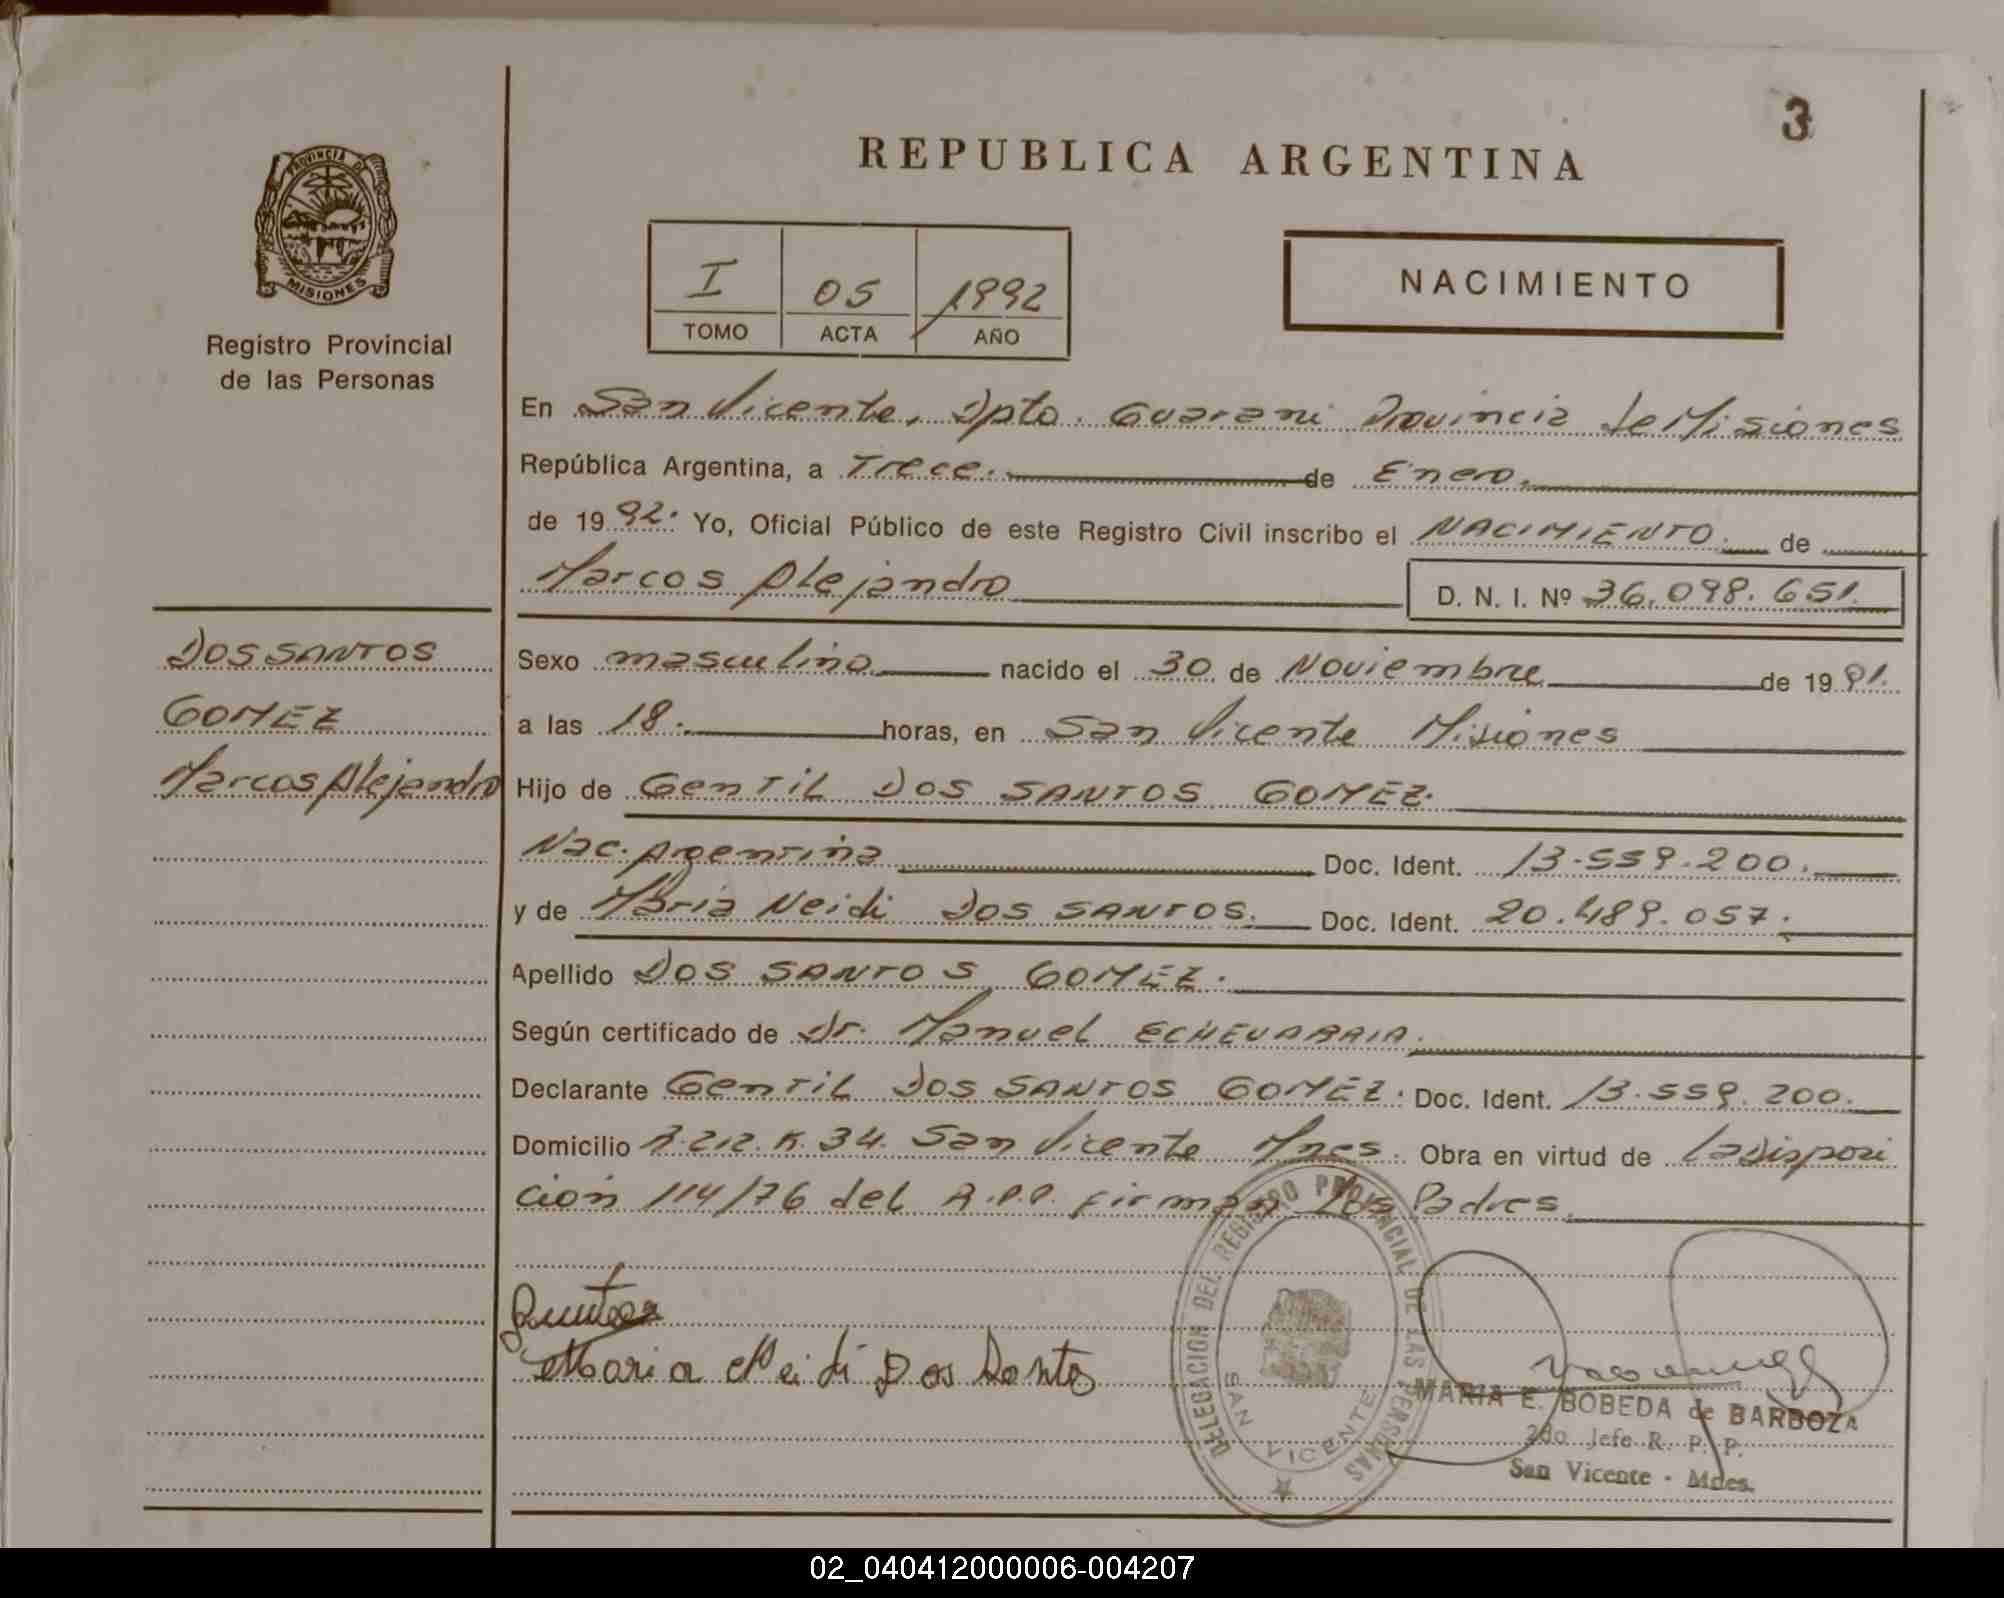 3
REPUBLICA ARGENTINA
PROVINCIA DE
MISIONES
Registro Provincial
de las Personas
I 05 1992
TOMO ACTA AÑO
NACIMIENTO
En San Vicente, Dpto. Guarani Provincia de Misiones
República Argentina, a Trece. de Enero.
de 1992. Yo, Oficial Público de este Registro Civil inscribo el NACIMIENTO. de
Marcos Alejandro D. N. I. Nº 36.098.651.
DOS SANTOS
GOMEZ
Marcos Alejandro
Sexo masculino nacido el 30 de Noviembre de 1991.
a las 18. horas, en San Vicente Misiones
Hijo de GENTIL DOS SANTOS GOMEZ.
Nac. Argentina Doc. Ident. 13.559.200.
y de Maria Neidi DOS SANTOS. Doc. Ident. 20.489.057.
Apellido DOS SANTOS GOMEZ.
Según certificado de Dr. Manuel ECHEVARRIA.
Declarante GENTIL DOS SANTOS GOMEZ. Doc. Ident. 13.559.200.
Domicilio R.212.K.34. San Vicente Mnes. Obra en virtud de la Disposi
ción 114/76 del R.P.P. firman los Padres.
Maria Neidi Dos Santos
DELEGACION DEL REGISTRO PROVINCIAL DE LAS PERSONAS
SAN VICENTE
MARIA E. BOBEDA de BARBOZA
2do Jefe R. P. P.
San Vicente - Mdes.
02_040412000006-004207